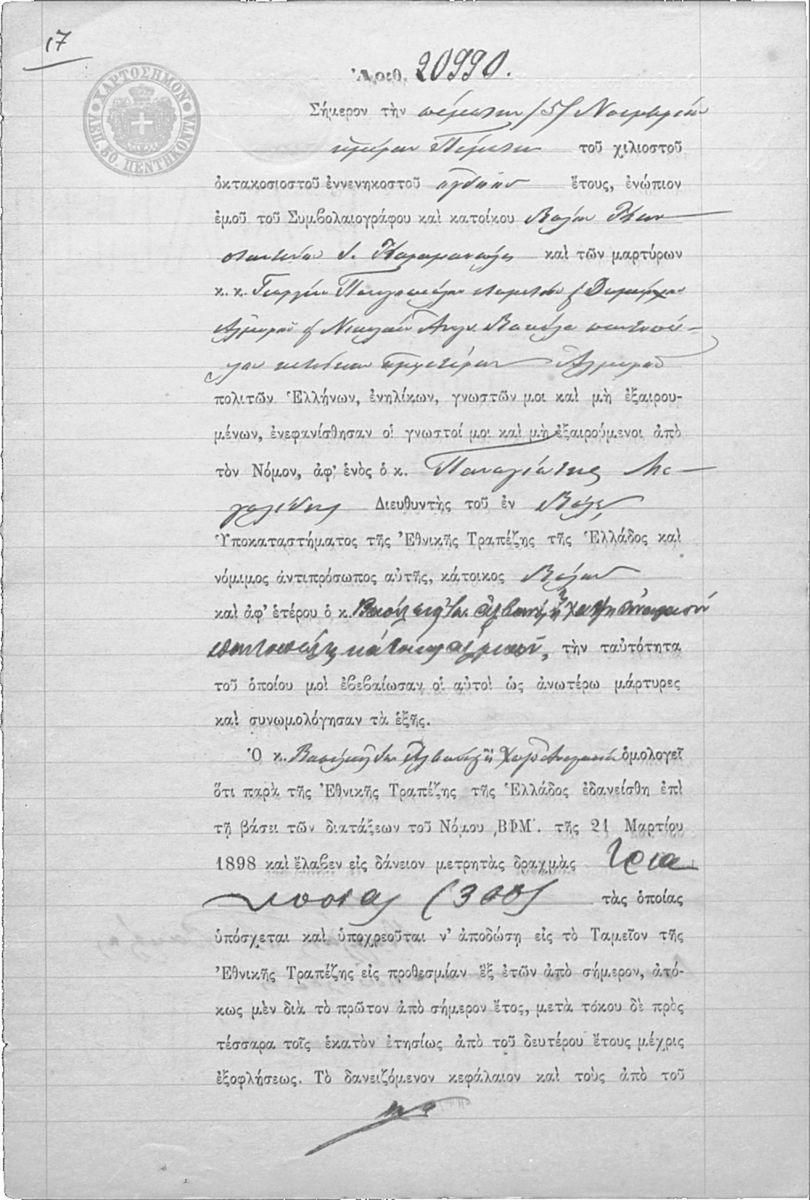 17
ΧΑΡΤΟΣΗΜΟΝ
ΛΕΠ. 50. ΠΕΝΤΗΚΟΝΤΑ
Ἀριθ. 20990.
Σήμερον τὴν πέμπτην /5/ Νοεμβρίου
ἡμέραν Πέμπτην τοῦ χιλιοστοῦ
ὀκτακοσιοστοῦ ἐννενηκοστοῦ ὀγδόου ἔτους, ἐνώπιον
ἐμοῦ τοῦ Συμβολαιογράφου καὶ κατοίκου Βόλου Κων
σταντίνου καὶ τῶν μαρτύρων
κ. κ. Γεωργίου
Ἁλμυροῦ Νικολάου παντοπώ-
λου κατοίκων Ἁλμυροῦ
πολιτῶν Ἑλλήνων, ἐνηλίκων, γνωστῶν μοι καὶ μὴ ἐξαιρου-
μένων, ἐνεφανίσθησαν οἱ γνωστοί μοι καὶ μὴ ἐξαιρούμενοι ἀπὸ
τὸν Νόμον, ἀφ' ἑνὸς ὁ κ. Παναγιώτης
Διευθυντὴς τοῦ ἐν Βόλῳ
Ὑποκαταστήματος τῆς Ἐθνικῆς Τραπέζης τῆς Ἑλλάδος καὶ
νόμιμος ἀντιπρόσωπος αὐτῆς, κάτοικος Βόλου
καὶ ἀφ' ἑτέρου ὁ κ.
παντοπώλης κάτοικος Ἁλμυροῦ, τὴν ταὐτότητα
τοῦ ὁποίου μοὶ ἐβεβαίωσαν οἱ αὐτοὶ ὡς ἀνωτέρω μάρτυρες
καὶ συνωμολόγησαν τὰ ἑξῆς.
Ὁ κ. ὁμολογεῖ
ὅτι παρὰ τῆς Ἐθνικῆς Τραπέζης τῆς Ἑλλάδος ἐδανείσθη ἐπὶ
τῇ βάσει τῶν διατάξεων τοῦ Νόμου ͵ΒΦΜʹ. τῆς 21 Μαρτίου
1898 καὶ ἔλαβεν εἰς δάνειον μετρητὰς δραχμὰς τρια
κοσίας (300) τὰς ὁποίας
ὑπόσχεται καὶ ὑποχρεοῦται ν' ἀποδώσῃ εἰς τὸ Ταμεῖον τῆς
Ἐθνικῆς Τραπέζης εἰς προθεσμίαν ἓξ ἐτῶν ἀπὸ σήμερον, ἀτό-
κως μὲν διὰ τὸ πρῶτον ἀπὸ σήμερον ἔτος, μετὰ τόκου δὲ πρὸς
τέσσαρα τοῖς ἑκατὸν ἐτησίως ἀπὸ τοῦ δευτέρου ἔτους μέχρις
ἐξοφλήσεως. Τὸ δανειζόμενον κεφάλαιον καὶ τοὺς ἀπὸ τοῦ